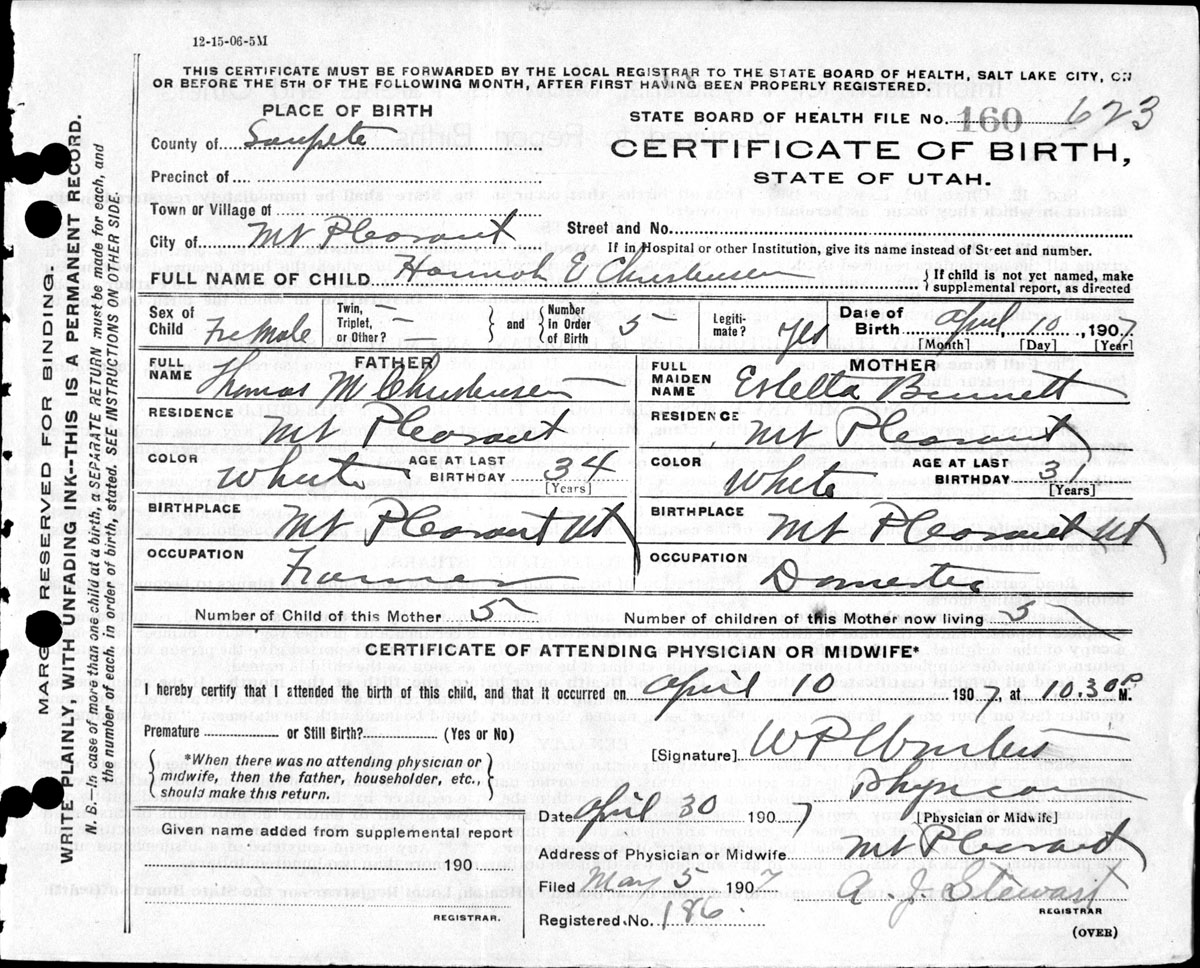 12-15-06-5M
THIS CERTIFICATE MUST BE FORWARDED BY THE LOCAL REGISTRAR TO THE STATE BOARD OF HEALTH, SALT LAKE CITY, ON
OR BEFORE THE 5TH OF THE FOLLOWING MONTH, AFTER FIRST HAVING BEEN PROPERLY REGISTERED.
PLACE OF BIRTH
STATE BOARD OF HEALTH FILE No. 160 623
County of Sanpete
CERTIFICATE OF BIRTH,
Precinct of
STATE OF UTAH.
Town or Village of
Street and No.
City of Mt Pleasant
If in Hospital or other Institution, give its name instead of Street and number.
FULL NAME OF CHILD Hannah E Christensen { If child is not yet named, make supplemental report, as directed
Sex of Child Fremale Twin, Triplet, or Other? — — — } and { Number in Order of Birth 5 Legitimate? Yes Date of Birth April 10 1907
[Month] [Day] [Year]
FATHER
FULL NAME Thomas M Christensen
MOTHER
FULL MAIDEN NAME Bennett
RESIDENCE Mt Pleasant
RESIDENCE Mt Pleasant
COLOR White AGE AT LAST BIRTHDAY 34 [Years]
COLOR White AGE AT LAST BIRTHDAY 31 [Years]
BIRTHPLACE Mt Pleasant Ut
BIRTHPLACE Mt Pleasant Ut
OCCUPATION Farmer
OCCUPATION Domestic
Number of Child of this Mother 5
Number of children of this Mother now living 5
CERTIFICATE OF ATTENDING PHYSICIAN OR MIDWIFE*
I hereby certify that I attended the birth of this child, and that it occurred on April 10 1907, at 10.30 P M.
Premature or Still Birth? (Yes or No)
[Signature] W P
{ *When there was no attending physician or midwife, then the father, householder, etc., should make this return. }
Physician
[Physician or Midwife]
Date April 30 1907
Given name added from supplemental report
Address of Physician or Midwife Mt Pleasant
190
Filed May 5 1907 A. J. Stewart
REGISTRAR.
REGISTRAR
Registered No. 186.
(OVER)
MARG RESERVED FOR BINDING.
WRITE PLAINLY, WITH UNFADING INK--THIS IS A PERMANENT RECORD.
N. B.—In case of more than one child at a birth, a SEPARATE RETURN must be made for each, and
the number of each, in order of birth, stated. SEE INSTRUCTIONS ON OTHER SIDE.